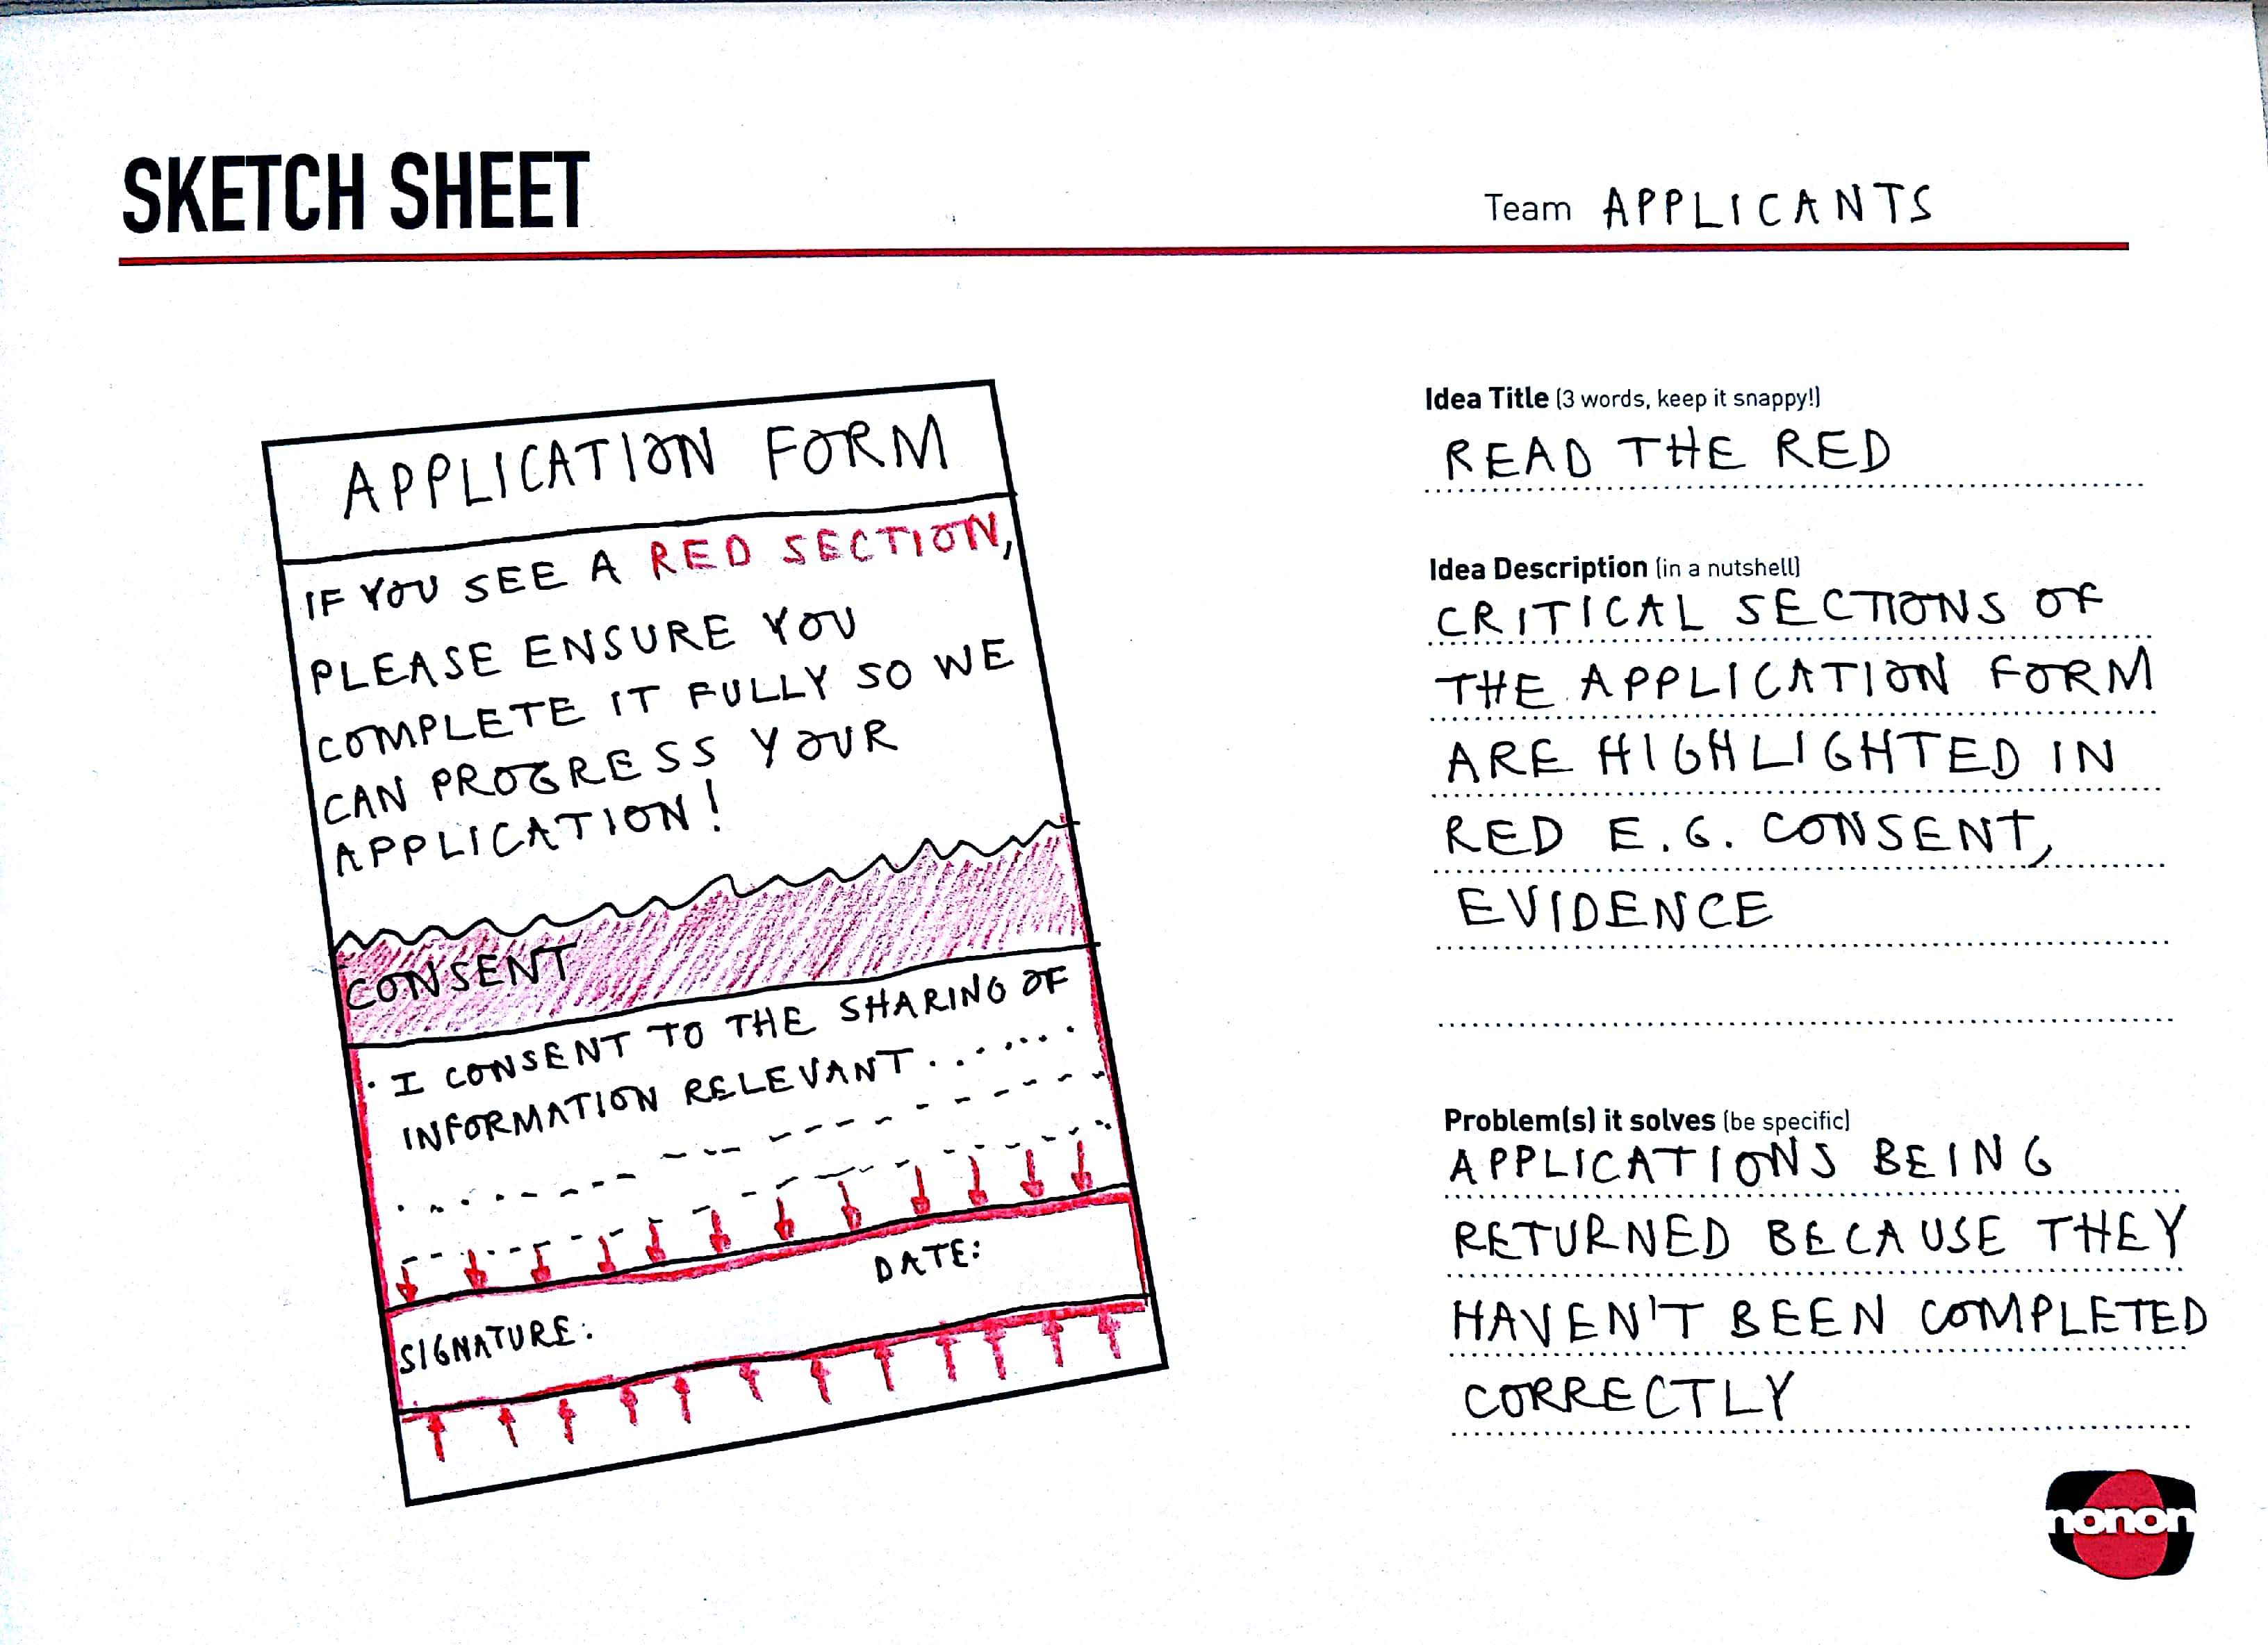 SKETCH SHEET
Team APPLICANTS
APPLICATION FORM
IF YOU SEE A RED SECTION,
PLEASE ENSURE YOU
COMPLETE IT FULLY SO WE
CAN PROGRESS YOUR
APPLICATION!
CONSENT
I CONSENT TO THE SHARING OF
INFORMATION RELEVANT.......
DATE:
SIGNATURE:
Idea Title (3 words, keep it snappy!)
READ THE RED
Idea Description (in a nutshell)
CRITICAL SECTIONS OF
THE APPLICATION FORM
ARE HIGHLIGHTED IN
RED E.G. CONSENT,
EVIDENCE
Problem(s) it solves (be specific)
APPLICATIONS BEING
RETURNED BECAUSE THEY
HAVEN'T BEEN COMPLETED
CORRECTLY
nonon